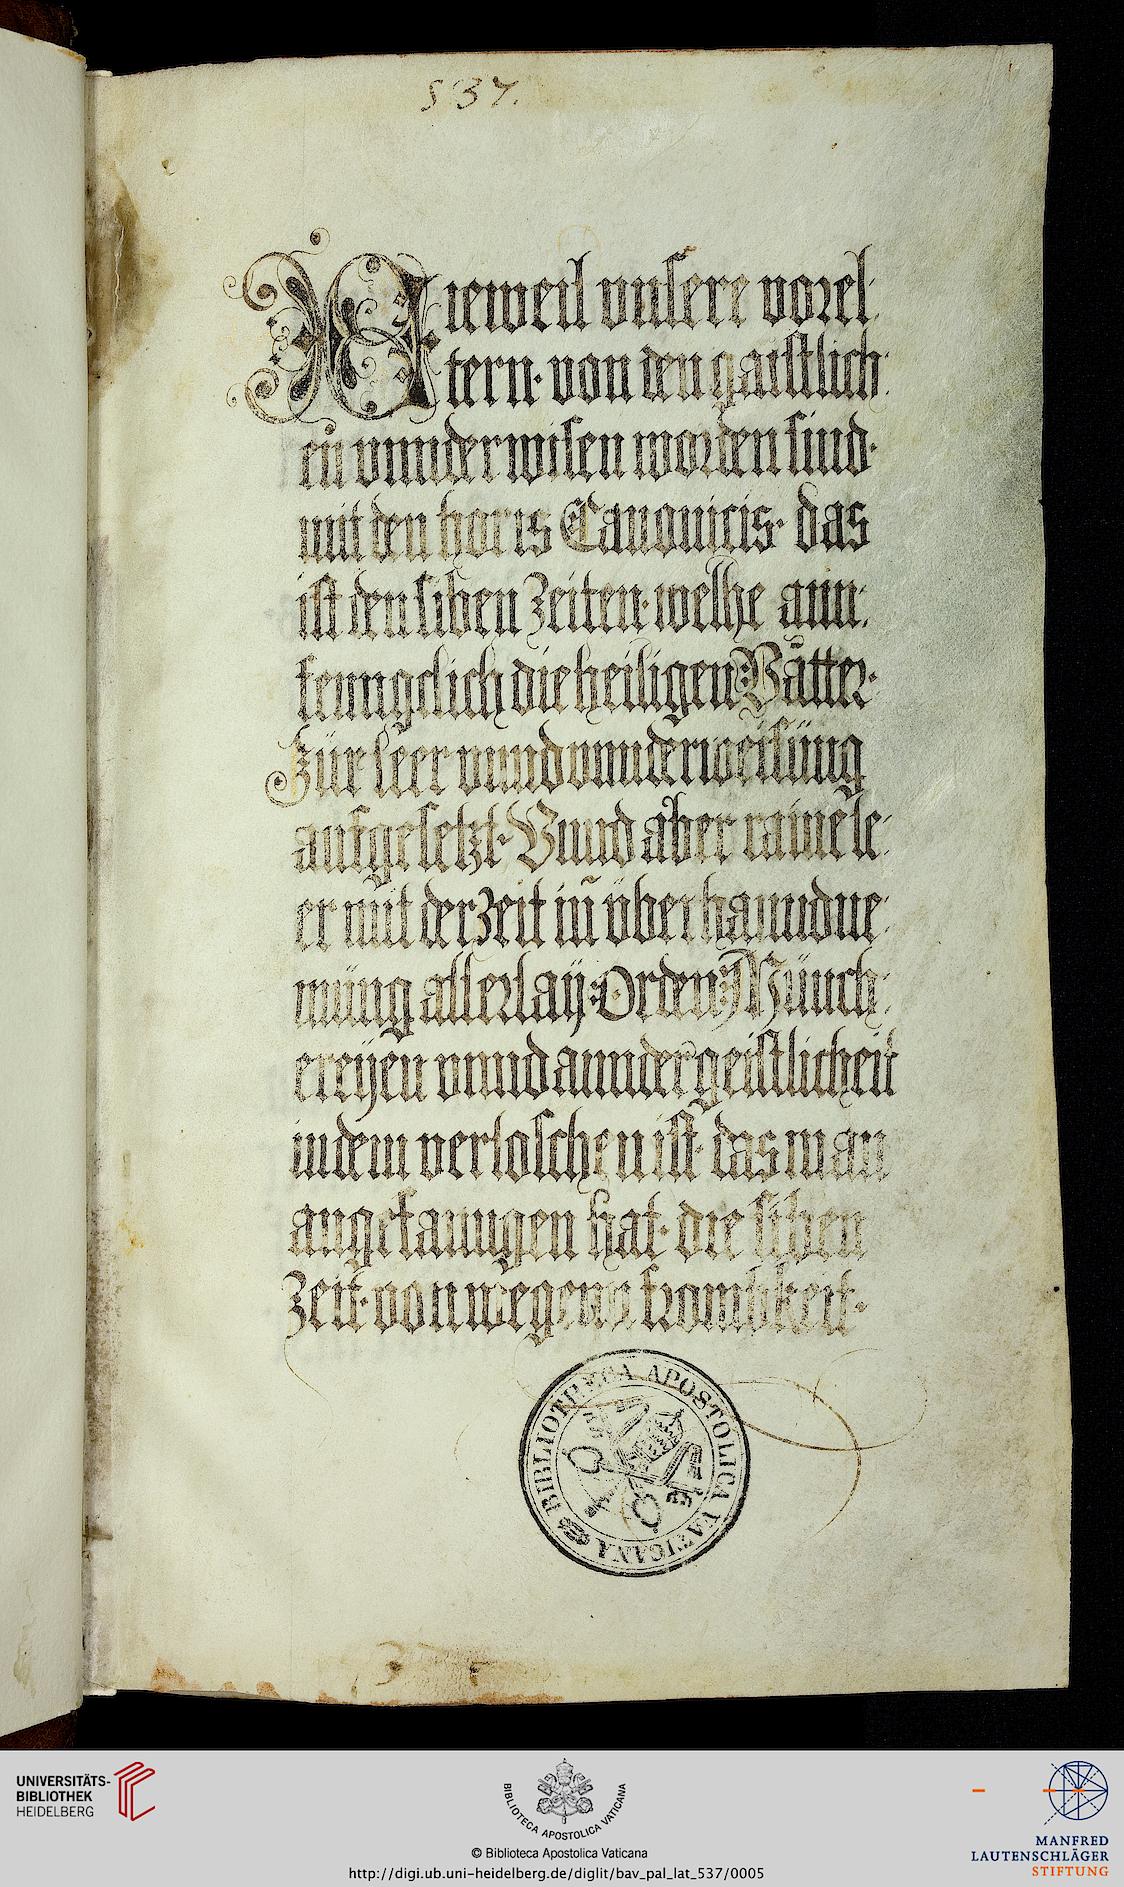 537.
Dieweil vnsere vorel:
tern· von den gaistlich:
en vnnderwisen worden sind·
mit den horis Canonicis· das
ist den siben Zeiten· welhe ann:
fenngclich die heiligen Vätter·
Zür leer vnnd vnnderweisüng
aufgesetzt· Vnnd aber raine le:
er mit der Zeit in überhanndne:
müng allerlaÿ Orden Münch:
ereÿen vnnd annder geistlicheit
in dem verloschen ist· das man
angefanngen hat· die siben
Zeit· von wegen frombkeit·
BIBLIOTHECA APOSTOLICA VATICANA
37
UNIVERSITÄTS-
BIBLIOTHEK
HEIDELBERG
BIBLIOTECA APOSTOLICA VATICANA
© Biblioteca Apostolica Vaticana
http://digi.ub.uni-heidelberg.de/diglit/bav_pal_lat_537/0005
MANFRED
LAUTENSCHLÄGER
STIFTUNG